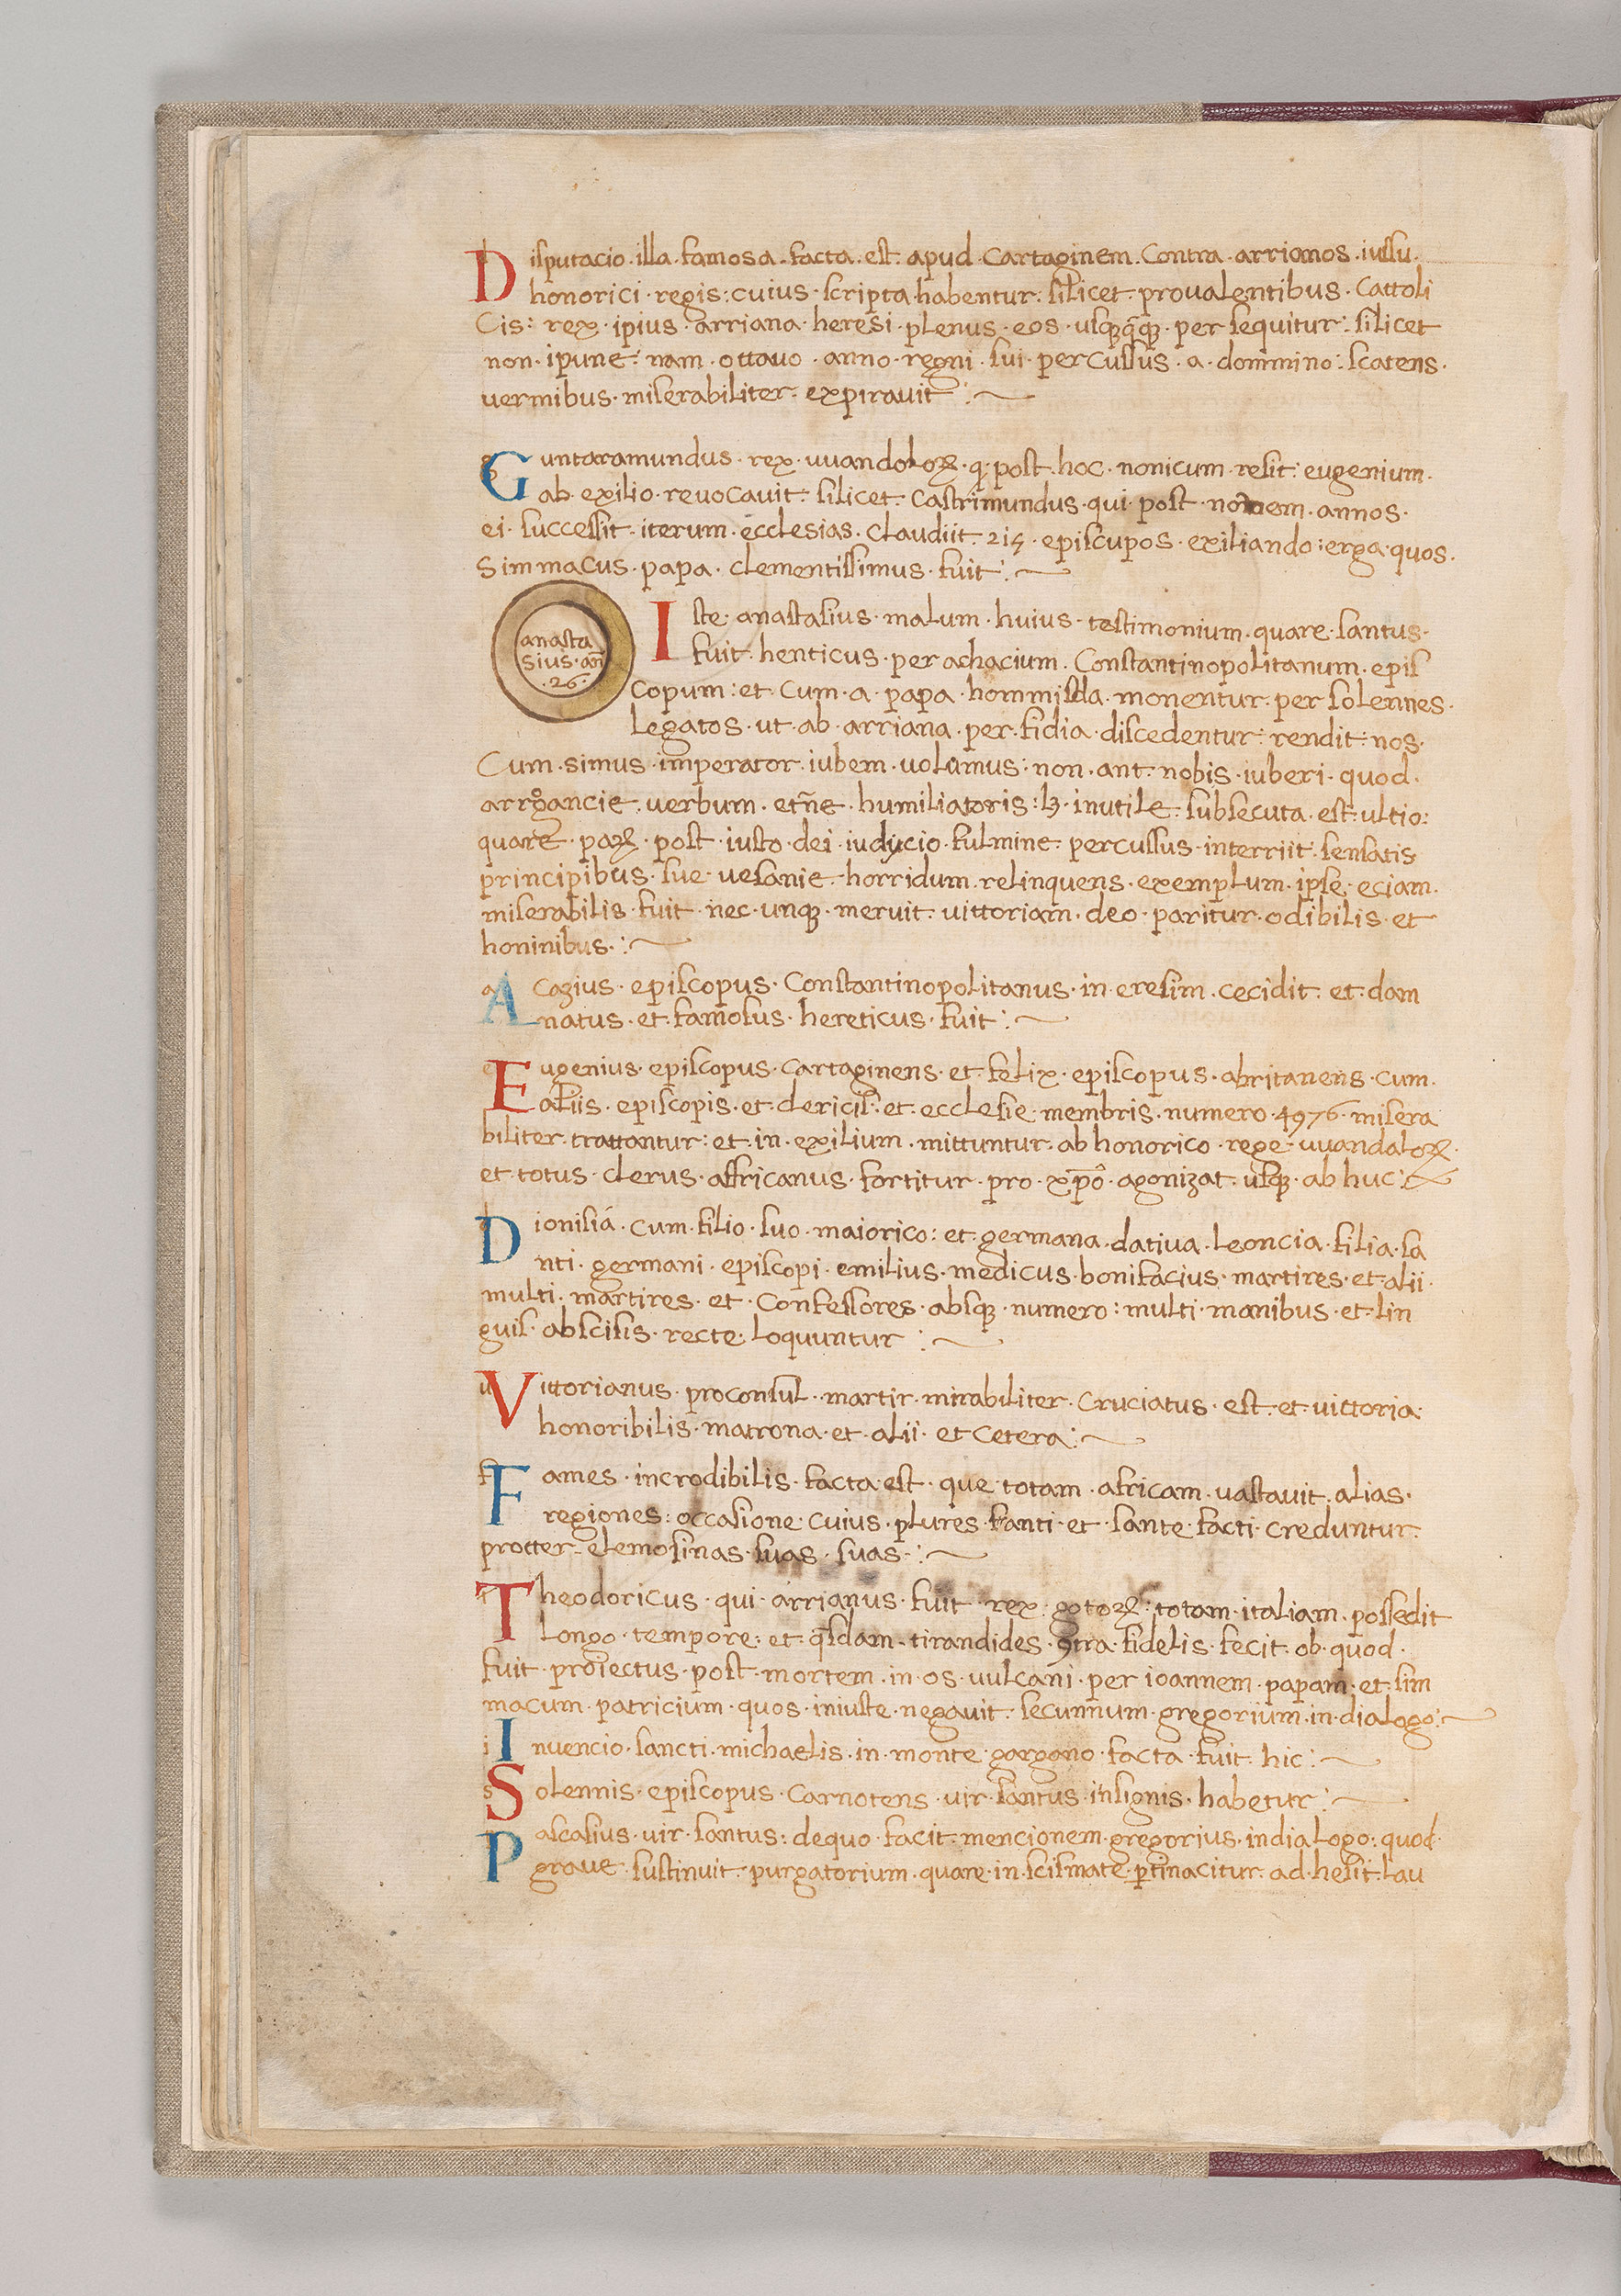 Disputacio · illa · famosa · facta · est · apud · Cartaginem · Contra · arrianos · iussu ·
honorici · regis : cuius · scripta · habentur : silicet · provalentibus · Cattoli
Cis : rex · ipius · arriana · heresi · plenus · eos · usq3 · per sequitur : silicet
non · ipune : nam · ottavo · anno · regni · sui · percussus · a · dommino : scatens ·
vermibus · miserabiliter · expiravit :~
Guntaramundus · rex · vuandoloꝝ · q · post · hoc · nonicum · resit : eugenium ·
ab · exilio · revocavit · silicet · Castrimundus · qui · post · annos ·
ei · successit · iterum · ecclesias · claudiit · 215 · episcupos · exiliando : erga · quos ·
Simmacus · papa · clementissimus · fuit :~
anasta
sius · an̄
· 26 ·
Iste · anastasius · malum · huius · testimonium · quare · santus ·
fuit · henticus · per achacium · Constantinopolitanum · epis
copum : et · cum · a · papa · hommisda · monentur · per solennes ·
legatos · ut · ab · arriana · per · fidia · discedentur : rendit : nos ·
Cum · simus · imperator · iubem · volumus : non · ant · nobis · iuberi · quod ·
arrogancie · verbum · etn̄e · humiliatoris : lꝫ · inutile · subsecuta · est · ultio :
quare · paꝝ · post · iusto · dei · iudycio · fulmine · percussus · interriit · sensatis
principibus · sue · vesanie · horridum · relinquens · exemplum · ipse · eciam ·
miserabilis · fuit · nec · unqꝫ · meruit · vittoriam · deo · paritur · odibilis · et
honinibus · :~
Acazius · episcopus · Constantinopolitanus · in · eresim · cecidit · et · dam
natus · et · famosus · hereticus · fuit :~
Eugenius · episcopus · cartaginens · et · felix · episcopus · abritanens · cum ·
aliis · episcopis · et · clericis : et · ecclesie · membris · numero · 4976 · misera
biliter · trattantur : et · in · exilium · mittuntur · ab honorico · rege · vuandaloꝝ ·
et · totus · clerus · affricanus · fortitur · pro · xp̄o · agonizat · usqꝫ · ab huc :~
Dionisia · cum · filio · suo · maiorico : et · germana · dativa · leoncia · filia · sa
nti · germani · episcopi · emilius · medicus · bonifacius · martires · et · alii ·
multi · martires · et · Confessores · absqꝫ · numero : multi · manibus · et · lin
guis · abscisis · recte · loquuntur :~
Vittorianus · proconsul · martir · mirabiliter · Cruciatus · est · et · vittoria ·
honoribilis · matrona · et · alii · et Cetera :~
Fames · incrodibilis · facta · est · que · totam · africam · vastavit · alias ·
regiones : occasione · cuius · plures · santi · et · sante · facti · creduntur ·
protter · elemosinas · suas · suas · :~
Theodoricus · qui · arrianus · fuit · rex · gotoꝝ : totam · italiam · possedit
longo · tempore : et · q̄sdam · tirandides · ꝯtra · fidelis · fecit · ob · quod ·
fuit · proiectus · post · mortem · in · os · vulcani · per ioannem · papam · et · sim
macum · patricium · quos · iniuste · negavit · secunnum · gregorium · in · dialogo :~
Invencio · sancti · michaelis · in · monte · gargano · facta · fuit · hic :~
Solennis · episcopus · Carnotens · vir · santus · insignis · habetur :~
Pascasius · vir · santus : dequo · facit · mencionem · gregorius · in dialogo : quod ·
grave · sustinuit · purgatorium · quare · in · scismate · ꝑtinacitur · ad · hesit · lau